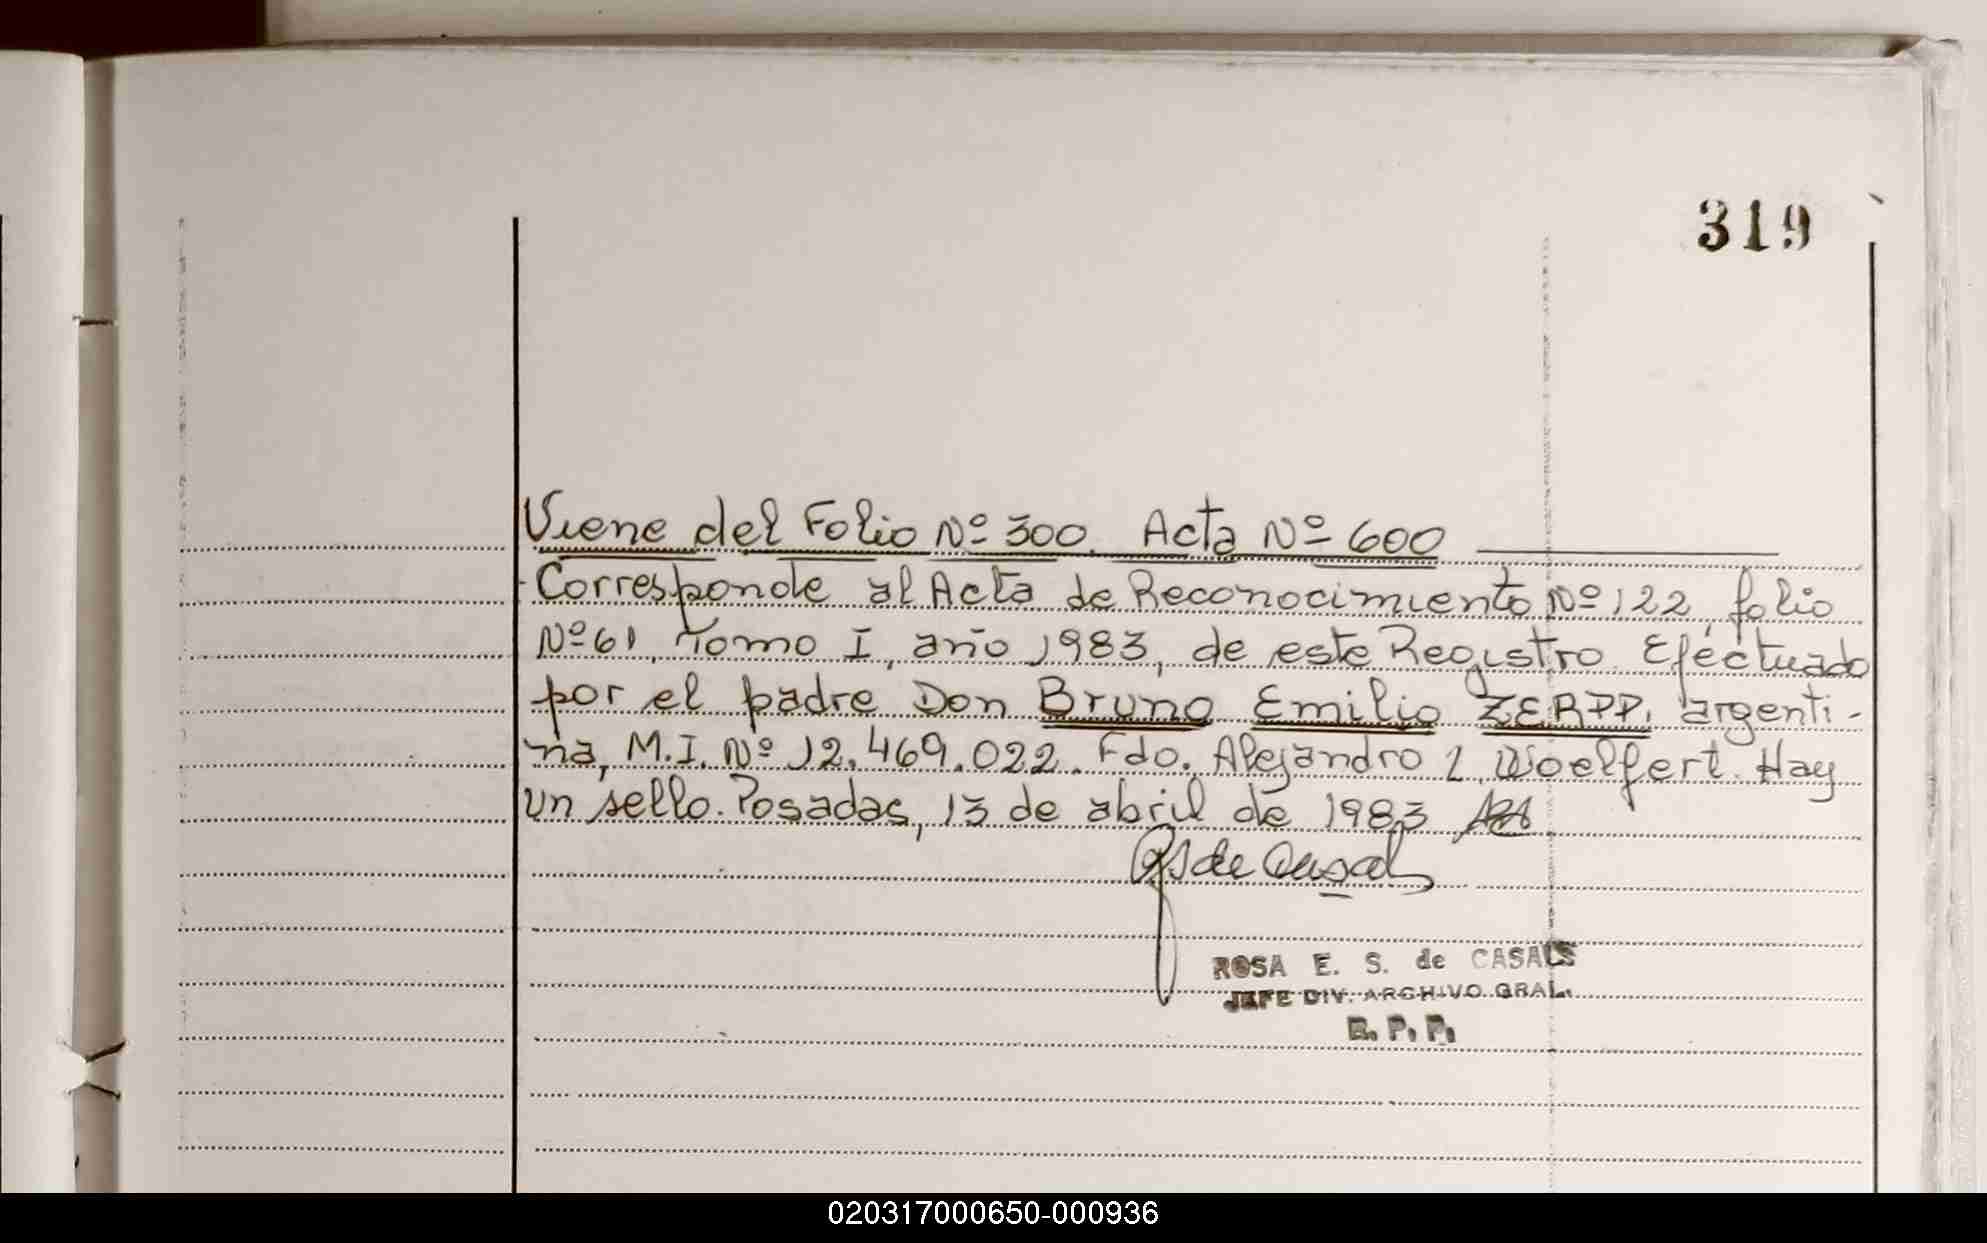 319
Viene del Folio Nº 300. Acta Nº 600
Corresponde al Acta de Reconocimiento Nº 122, folio
Nº 61, Tomo I, año 1983, de este Registro Eféctuado
por el padre Don Bruno Emilio ZERPP, argenti-
na, M.I. Nº 12.469.022. Fdo. Alejandro L. Woelfert. Hay
un sello. Posadas, 13 de abril de 1983
RS de Casals
ROSA E. S. de CASALS
JEFE DIV. ARCHIVO GRAL.
R. P. P.
020317000650-000936